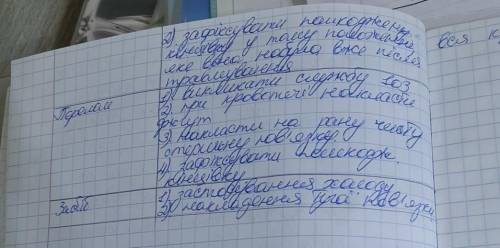 2) зафіксувати пошкоджену
кінцівку у тому положенні,
яке вона набула вже після
травмування
Перелом
1) викликати службу 103
2) при кровотечі накласти
джгут
3) накласти на рану чисту
стерильну пов'язку
4) зафіксувати пошкодж.
кінцівку
Забій
1) застосування холоду
2) накладення тугої пов'язки
вся